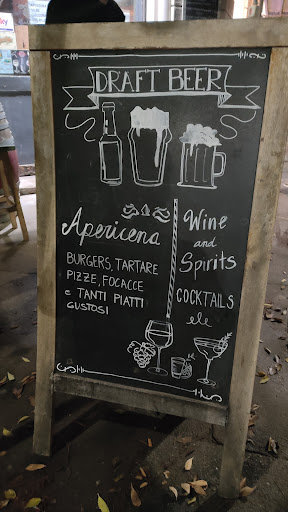 DRAFT BEER
Apericena
BURGERS, TARTARE
PIZZE, FOCACCE
e TANTI PIATTI
GUSTOSI
Wine
and
Spirits
COCKTAILS